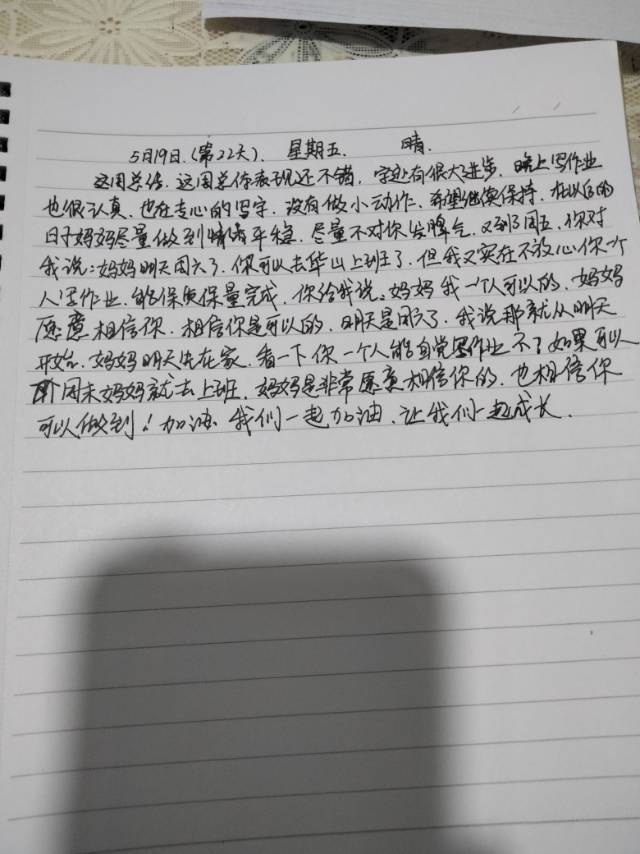 5月19日.(第22天). 星期五. 晴.
这周总结. 这周总体表现还不错, 字迹有很大进步. 晚上写作业
也很认真. 也在专心的写字. 没有做小动作. 希望继续保持. 在以后的
日子妈妈尽量做到情绪平稳. 尽量不对你发脾气. 又到了周五. 你对
我说:妈妈明天周六了. 你可以去华山上班了. 但我又实在不放心你一个
人写作业. 能保质保量完成. 你给我说. 妈妈我一个人可以的. 妈妈
愿意相信你. 相信你是可以的. 明天是周六了. 我说那就从明天
开始. 妈妈明天先在家. 看一下你一个人能自觉写作业不? 如果可以
周末妈妈就去上班. 妈妈是非常愿意相信你的. 也相信你
可以做到! 加油. 我们一起加油. 让我们一起成长.